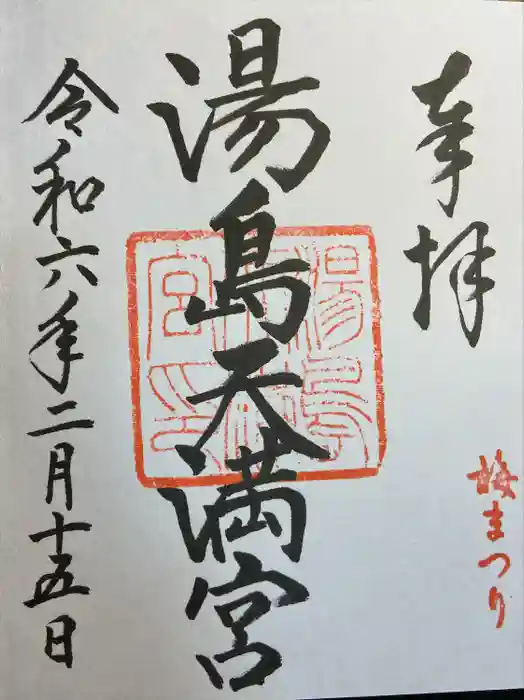 奉拝
梅まつり
湯島天満宮
令和六年二月十五日